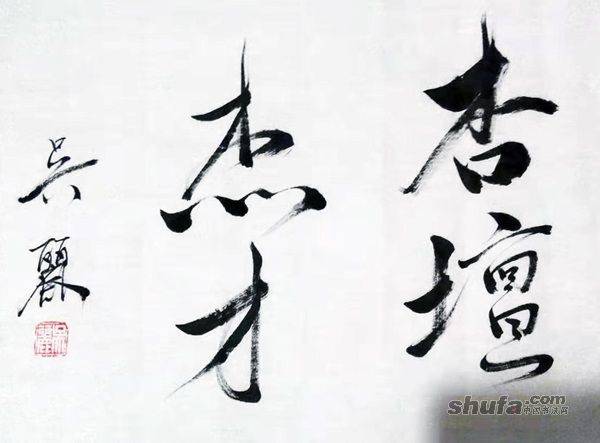 杏壇
杰才
吴麗
shufa.com
中国书法网